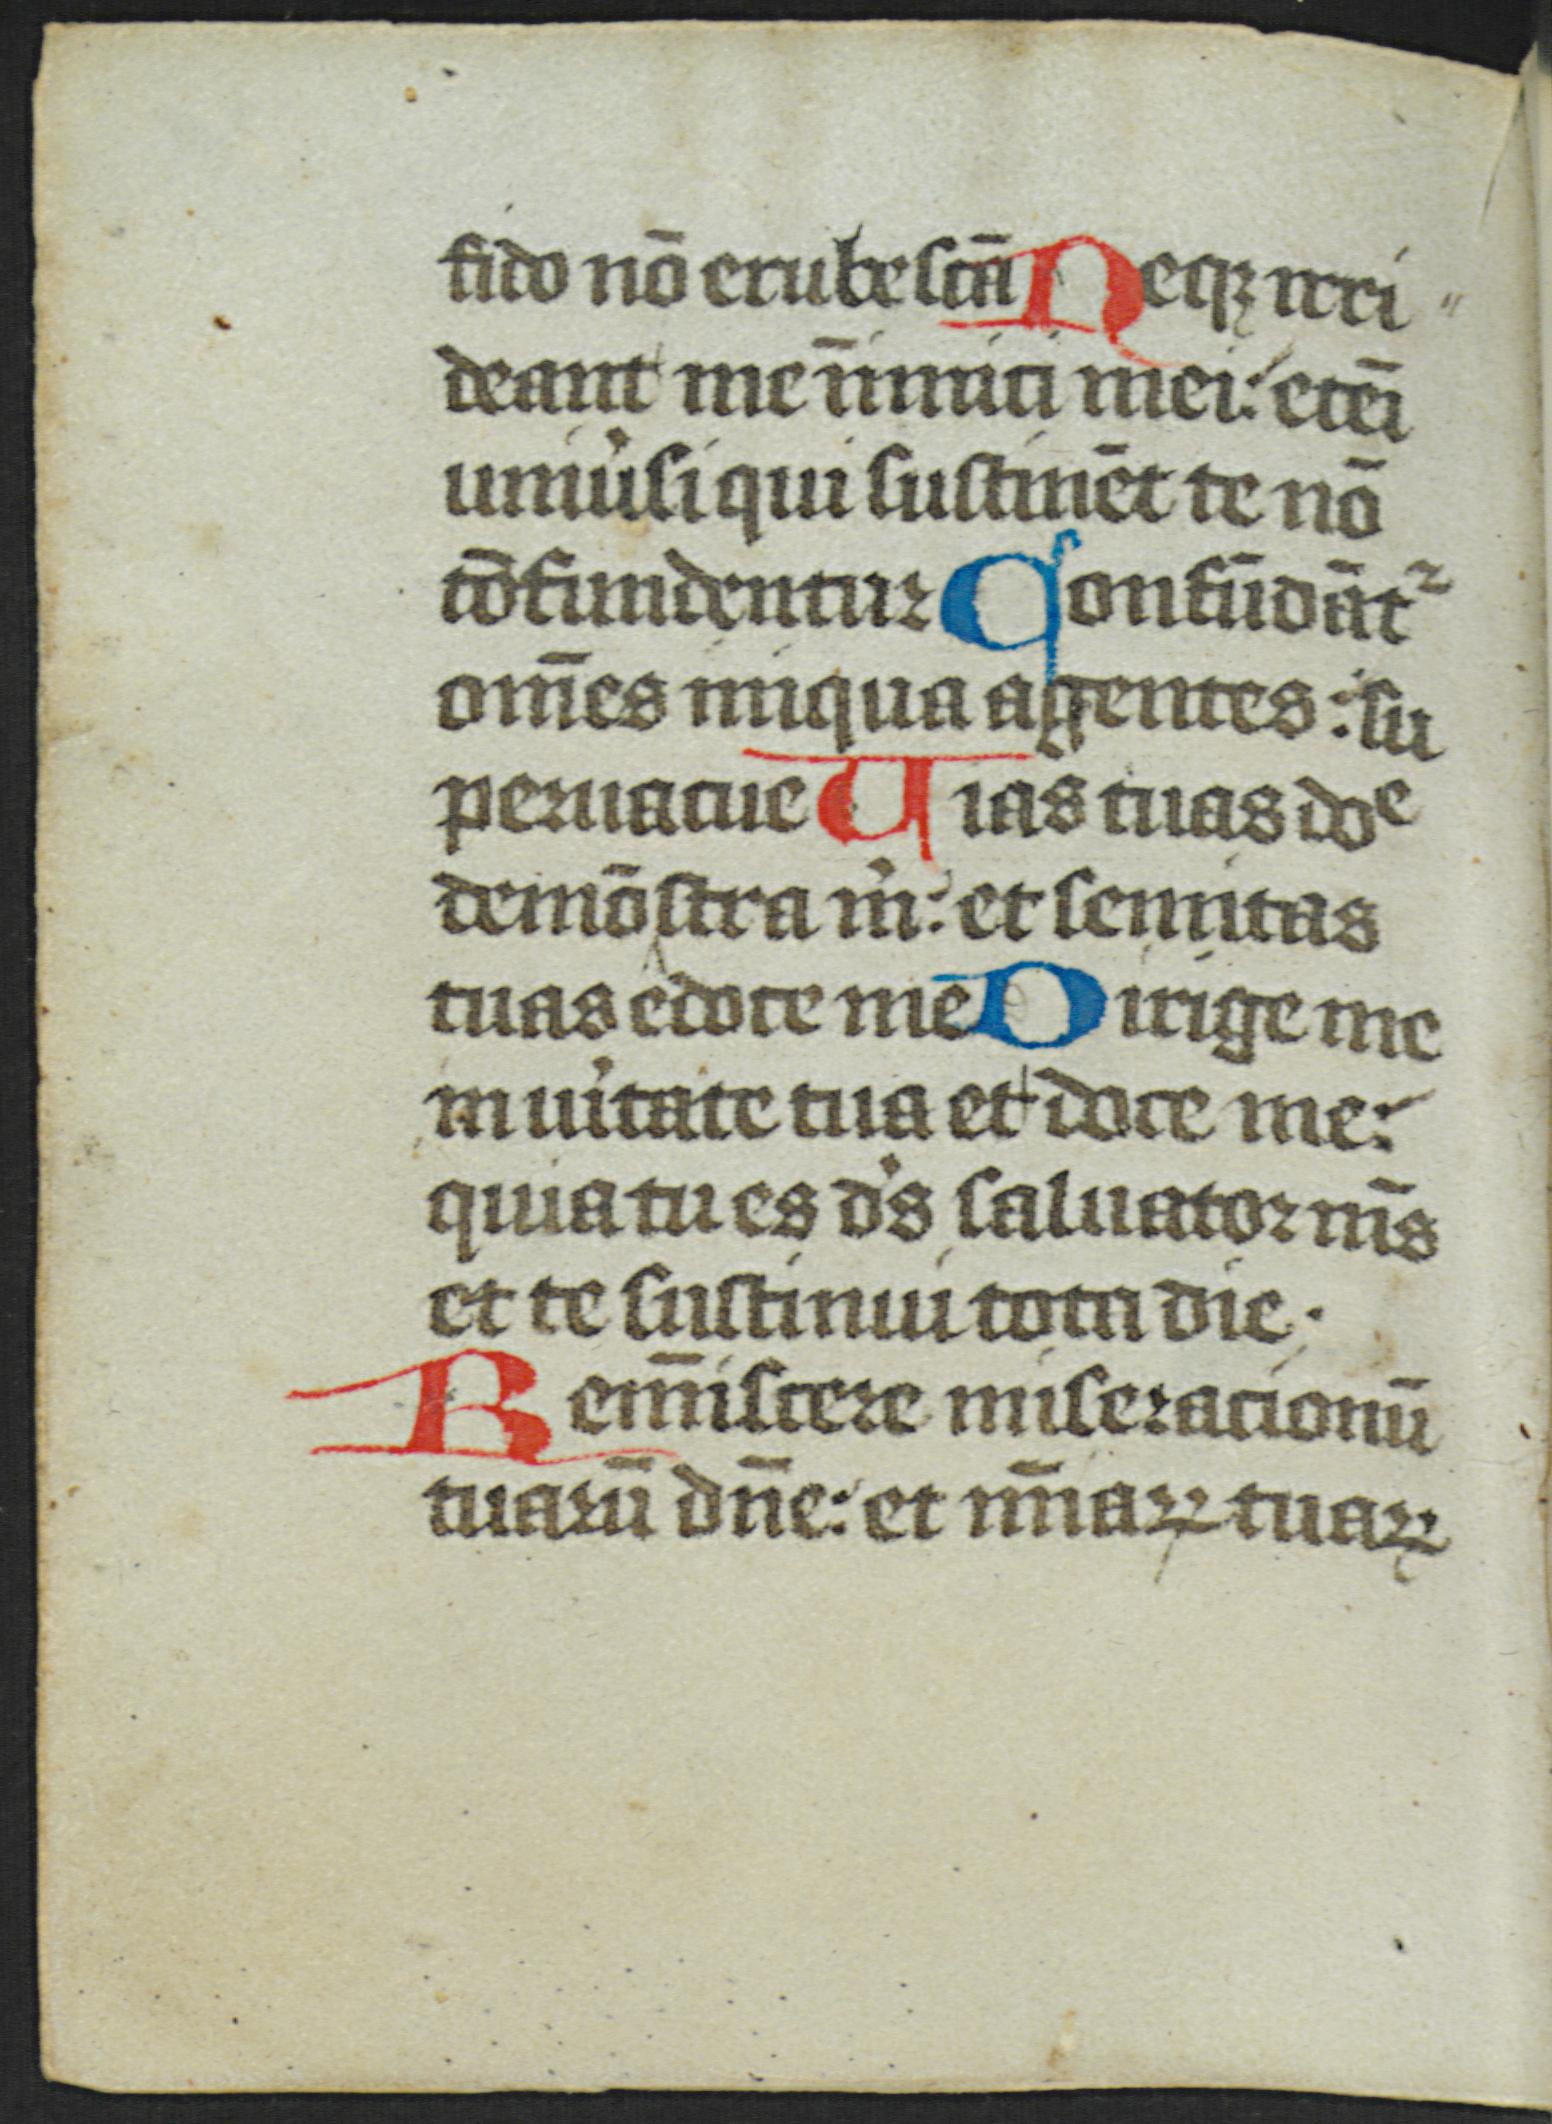 fido nō erubescā Neqꝫ irri
deant me inimici mei: eteī
uniu̾si qui sustinēt te nō
cōfundentur Confūdāt᷑
om̄es iniqua agentes: su
peruacue Uias tuas doᵉ
demōstra m̍: et semitas
tuas edoce me Dirige me
in uı̾tate tua et doce me:
quia tu es ds̾ saluator m̄s
et te sustinui tota die.
Rem̄iscere miseracionū
tuarū dn̄e: et mīaꝝ tuaꝝ